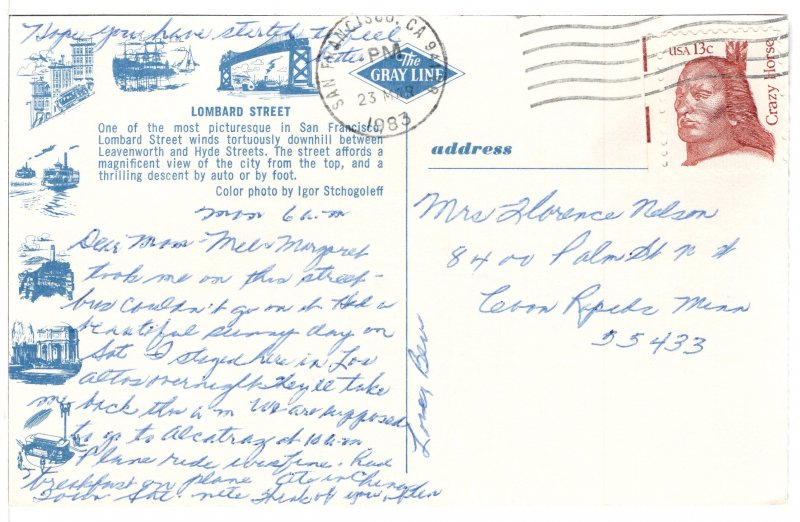 Hope you have started to feel
better
The
GRAY LINE
SAN FRANCISCO, CA
PM
23 MAR
1983
USA 13c
Crazy Horse
LOMBARD STREET
One of the most picturesque in San Francisco,
Lombard Street winds tortuously downhill between
Leavenworth and Hyde Streets. The street affords a
magnificent view of the city from the top, and a
thrilling descent by auto or by foot.
Color photo by Igor Stchogoleff
address
Mon 6 a.m
Dear Mom - Mel & Margaret
took me on this street -
bus couldn't go on it Had a
beautiful sunny day on
Sat I stayed here in Los
Altos overnight & they'll take
me back this a m We are supposed
to go to Alcatraz at 10 a.m
Plane ride was fine. Had
breakfast on plane Ate in China
Town Sat. nite Think of you often
Love, Bev
Mrs Florence Nelson
8400 Palm St N W
Coon Rapids Minn
55433